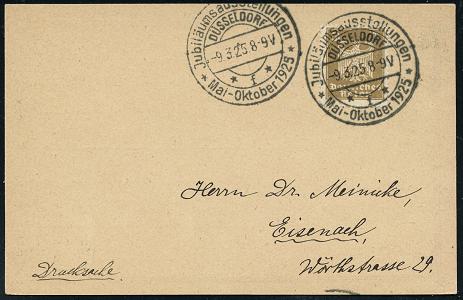 Jubiläumsausstellungen
DÜSSELDORF
-9.3.25 8-9V
* f *
* Mai-Oktober 1925 *
Jubiläumsausstellungen
DÜSSELDORF
-9.3.25 8-9V
* f *
* Mai-Oktober 1925 *
Deutsches
Reich
Herrn Dr. Meinicke,
Eisenach,
Wörthstrasse 29.
Drucksache.